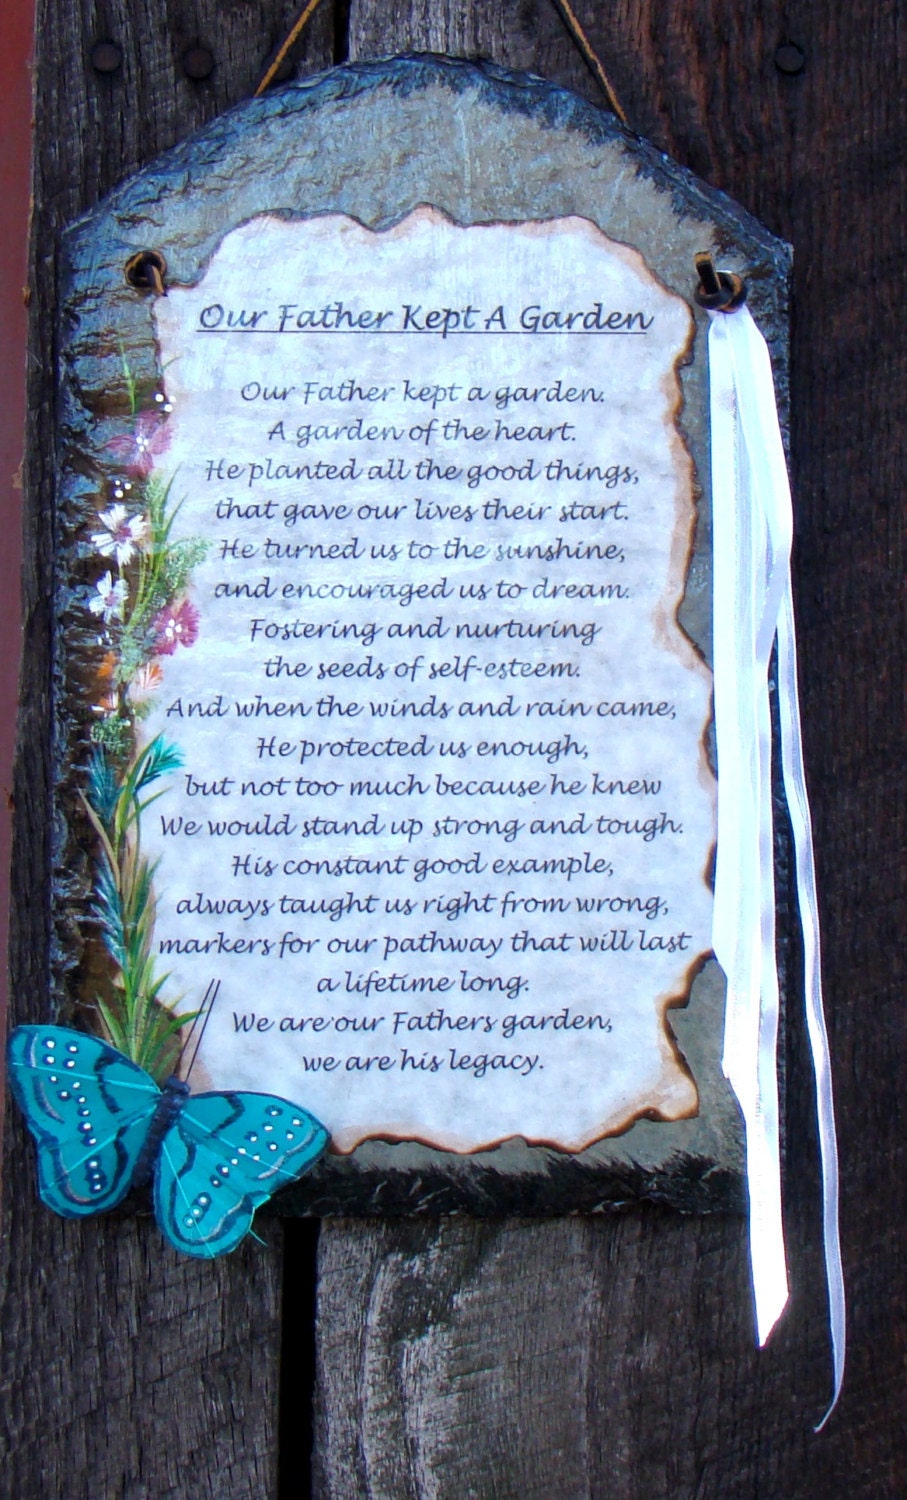 Our Father Kept A Garden
Our Father kept a garden.
A garden of the heart.
He planted all the good things,
that gave our lives their start.
He turned us to the sunshine,
and encouraged us to dream.
Fostering and nurturing
the seeds of self-esteem.
And when the winds and rain came,
He protected us enough,
but not too much because he knew
We would stand up strong and tough.
His constant good example,
always taught us right from wrong,
markers for our pathway that will last
a lifetime long.
We are our Fathers garden,
we are his legacy.